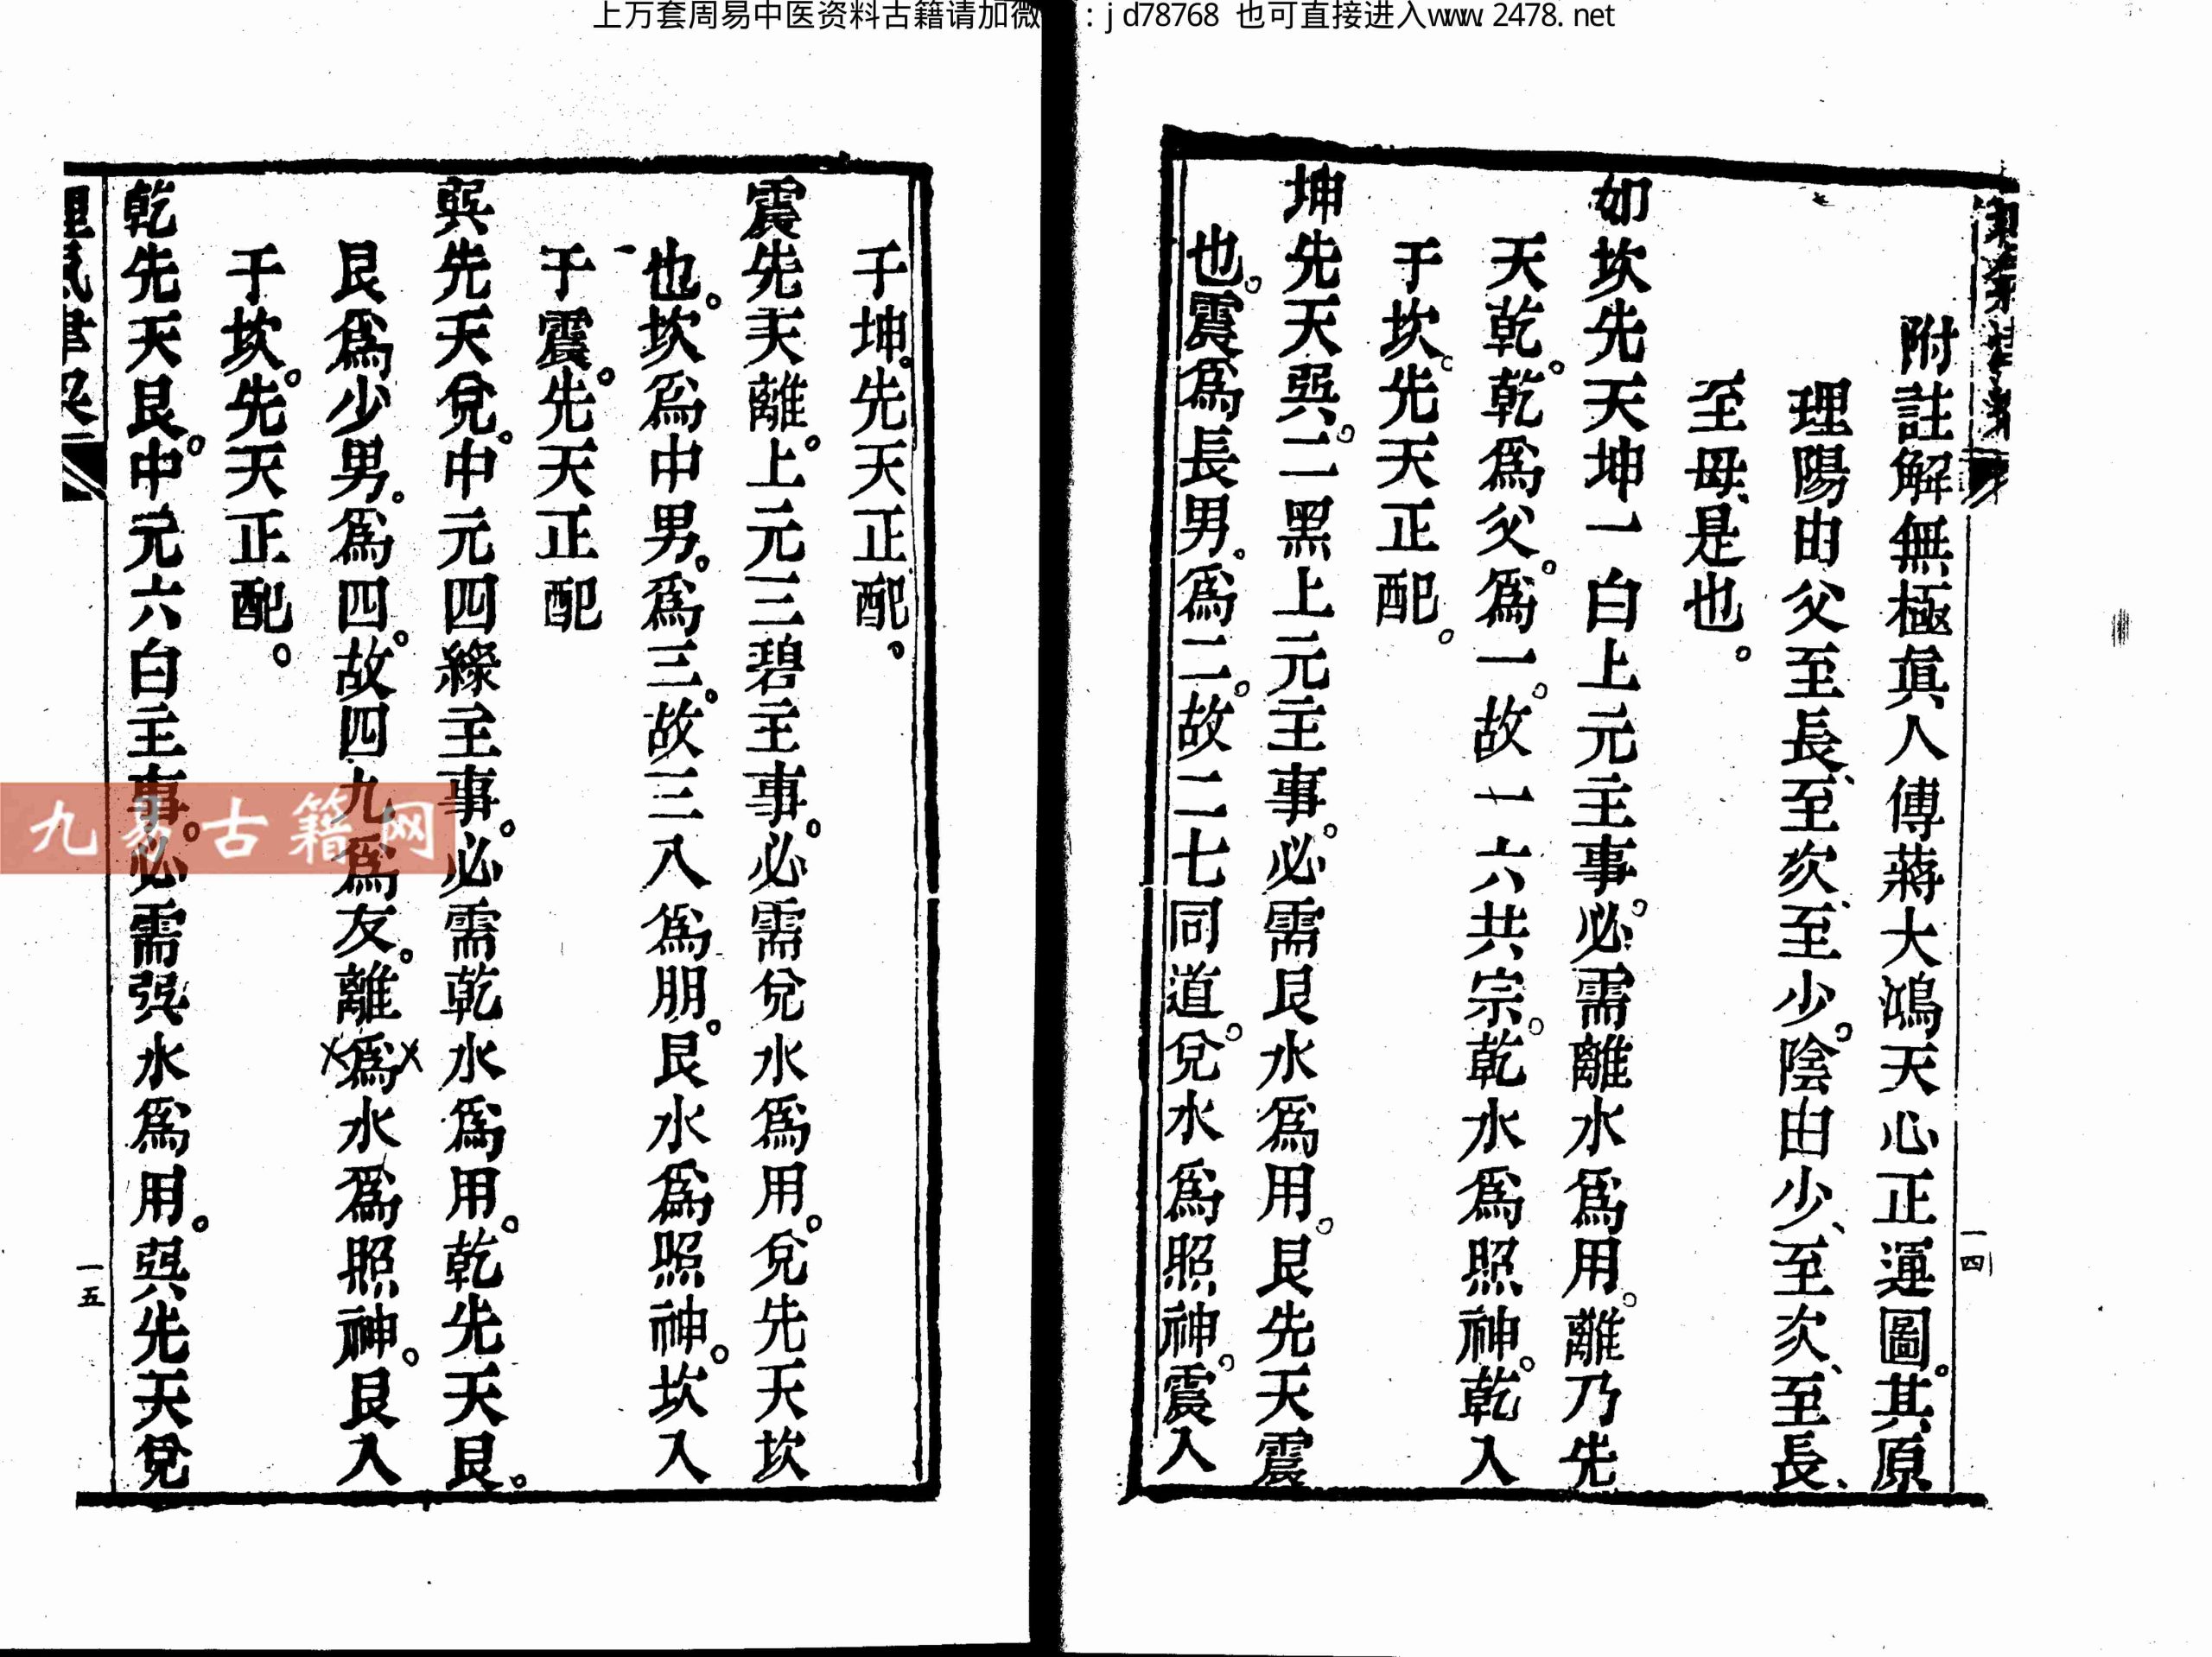 上万套周易中医资料古籍请加微:jd78768 也可直接进入www.2478.net
附註解無極眞人傅蔣大鴻天心正運圖。其原
理陽由父至長、至次、至少。陰由少、至次、至長、
至母、是也。
如坎先天坤一白上元主事。必需離水爲用。離乃先
天乾。乾爲父。爲一。故一六共宗。乾水爲照神。乾入
于坎。先天正配。
坤先天巽。二黑上元主事。必需艮水爲用。艮先天震
也。震爲長男。爲二。故二七同道。兌水爲照神。震入
一四
于坤。先天正配。
震先天離。上元三碧主事。必需兌水爲用。兌先天坎
也。坎爲中男。爲三。故三八爲朋。艮水爲照神。坎入
于震。先天正配
巽先天兌。中元四綠主事。必需乾水爲用。乾先天艮。
艮爲少男。爲四。故四九爲友。離爲水爲照神。艮入
于坎。先天正配。
乾先天艮。中元六白主事。必需巽水爲用。巽先天兌
理氣津梁
一五
九易古籍网